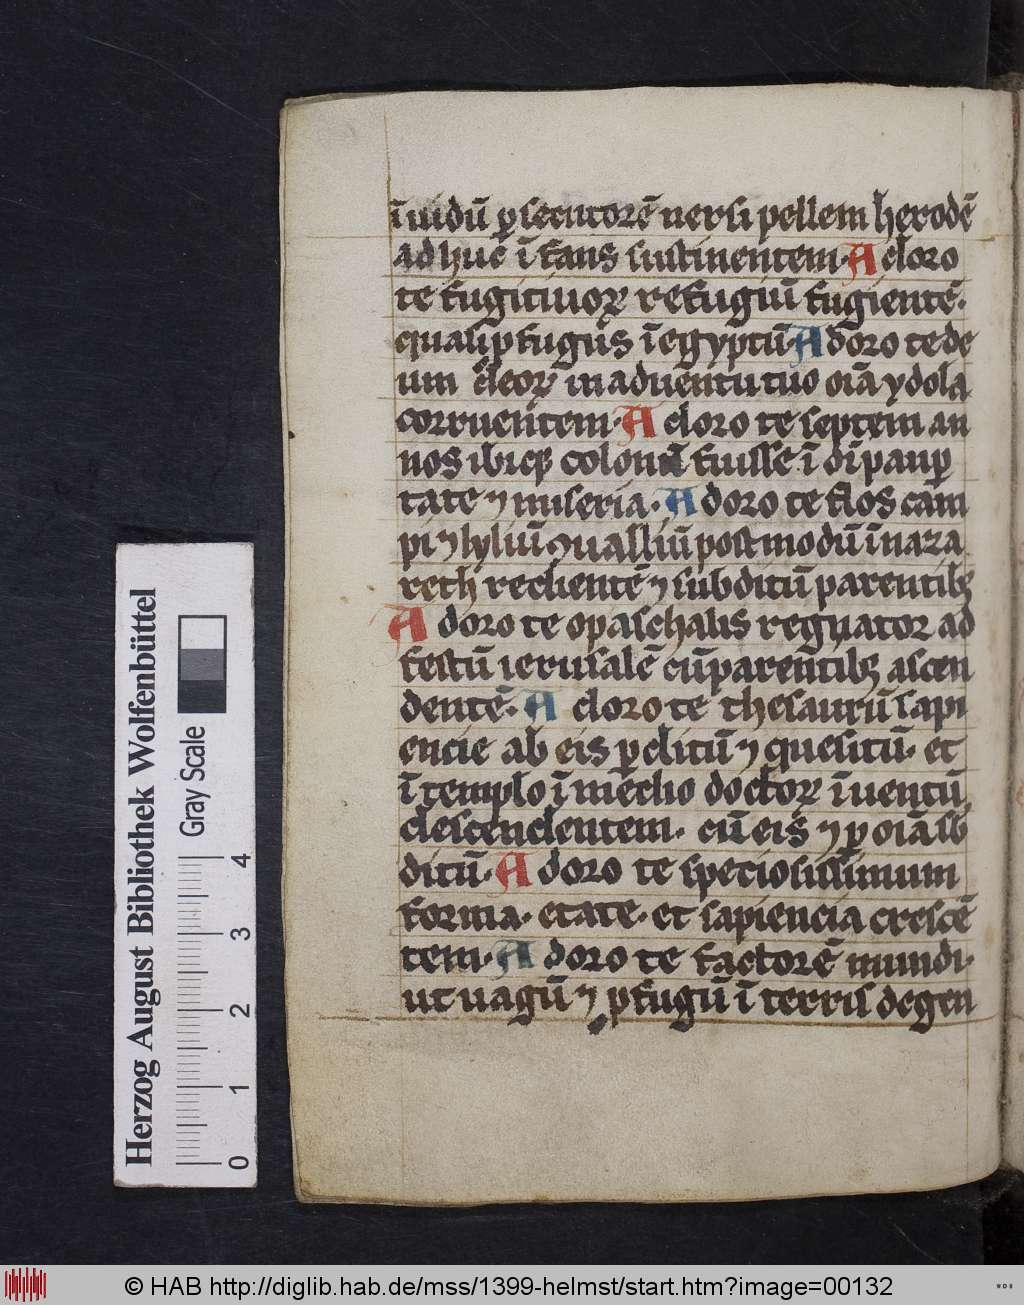 īuidū ꝑsecutorē uersipellem herodē
adhuc īfans sustinentem· Adoro
te fugitiuoꝝ refugiū fugientē·
quasi ꝓfugus ī egyptū· Adoro te de
um deoꝝ in aduentu tuo oīa ydola
corruentem· Adoro te septem an
nos ibiqꝫ colonū fuisse ī oī pauꝑ
tate ⁊ miseria· Adoro te flos cam
pi ⁊ lyliū ꝯualliū postmodū ī naza
reth redientē ⁊ subditū parentibꝫ
Adoro te o paschalis regnator ad
festū ierusalē cū parentibꝫ ascen
dentē· Adoro te thesaurū sapi
encie ab eis ꝑditū ⁊ quesitū· et
ī templo ī medio doctoꝝ īuentū
descendentem· cū eis ⁊ ꝑ oīa sb
ditū· Adoro te speciosissimum
forma· etate· et sapiencia crescē
tem· Adoro te factorē mundi·
ut uagū ⁊ ꝓfugū ī terris degen
Herzog August Bibliothek Wolfenbüttel
Gray Scale
0 1 2 3 4
© HAB http://diglib.hab.de/mss/1399-helmst/start.htm?image=00132